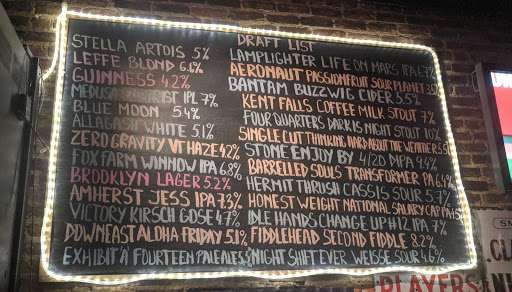 DRAFT LIST
STELLA ARTOIS 5%
LEFFE BLOND 6.6%
GUINNESS 4.2%
MEDUSA IPL 7%
BLUE MOON 5.4%
ALLAGASH WHITE 5.1%
ZERO GRAVITY VT HAZE 4.2%
FOX FARM WINNOW IPA 6.8%
BROOKLYN LAGER 5.2%
AMHERST JESS IPA 7.3%
VICTORY KIRSCH GOSE 4.7%
DOWNEAST ALOHA FRIDAY 5.1%
EXHIBIT 'A' FOURTEEN PALE ALE
LAMPLIGHTER LIFE ON MARS IPA 7%
AERONAUT PASSIONFRUIT SOUR PLANET
BANTAM BUZZWIG CIDER 5.5%
KENT FALLS COFFEE MILK STOUT 7%
FOUR QUARTERS DARK IS NIGHT STOUT 10%
SINGLE CUT THINKING HARD ABOUT THE WEATHER
STONE ENJOY BY 4/20 IPA 9.4%
BARRELLED SOULS TRANSFORMER PA 6.4%
HERMIT THRUSH CASSIS SOUR 5.7
HONEST WEIGHT NATIONAL SALARY CAP PA
IDLE HANDS CHANGE UP #12 IPA 7%
FIDDLEHEAD SECOND FIDDLE 8.2%
NIGHT SHIFT EVER WEISSE SOUR 4.6%
PLAYERS